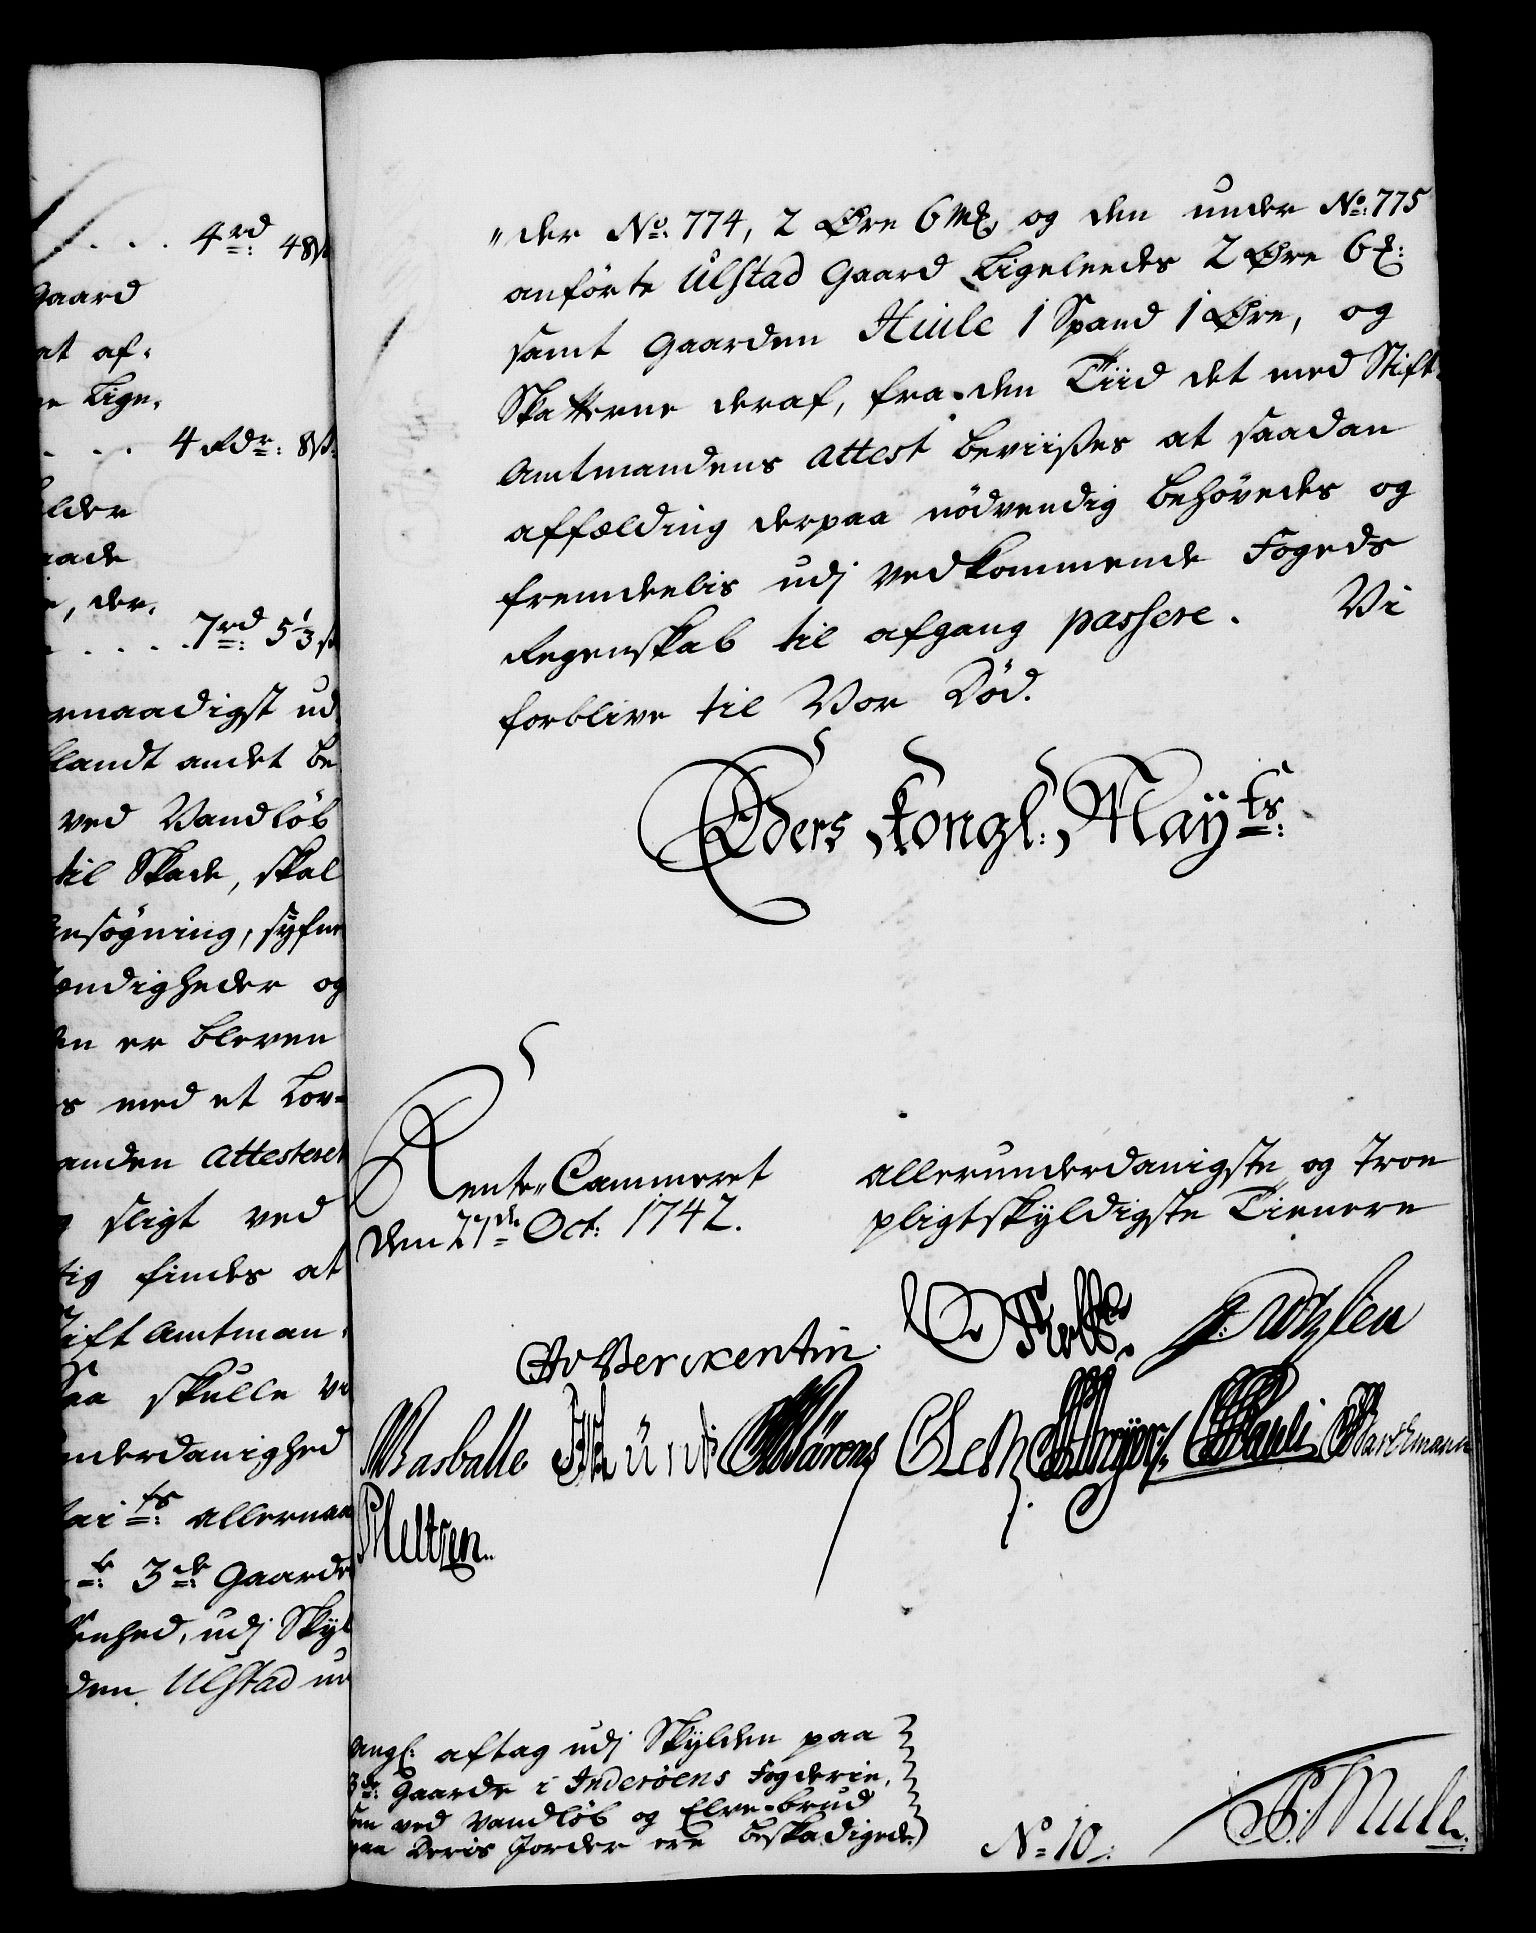 4 rd 48 ß
Gaard
at af-
Lige-
4 Rdr: 8 ß
older
aade
, der-
7 rd 5 1/3 ß
ernaadigst ud
blandt andet be
ved Vandløb
til Skade, skal
ansøgning, syfne
ændigheder og
en er bleven
s med et Lov-
anden attesteret
sligt ved
tig findes at
Stift Amtman-
Saa skulle vi
underdanighed
ts: allernaa
3de Gaarde
enhed, udj Skyl
den Ulstad un
"der No: 774, 2 Øre 6 Mk og den under No: 775
anførte Ulstad Gaard Ligeleedes 2 Øre 6
samt Gaarden Huile 1 Spand 1 Øre, og
Skatterne deraf, fra den Tiid det med Stift-
Amtmandens attest beviises at saadan
affælding derpaa nødvendig behøvedes og
fremdeelis udj vedkommende Fogeds
Regenskab til afgang passere. Vi
forblive til Vor Död.
Eders Kongl: Mayts:
Rente-Cammeret
den 27de Oct: 1742.
allerunderdanigste og Troe
pligtskyldigste Tienere
Berckentin
Wasballe OHMünt Mörens Pauli Barthmann
Neltzen
angl: aftag udj Skylden paa
3de Gaarde i Inderöens Fogderie,
som ved Vandløb og Elve-brud
paa Deris Jorder ere beskadigede
No 10
Mule